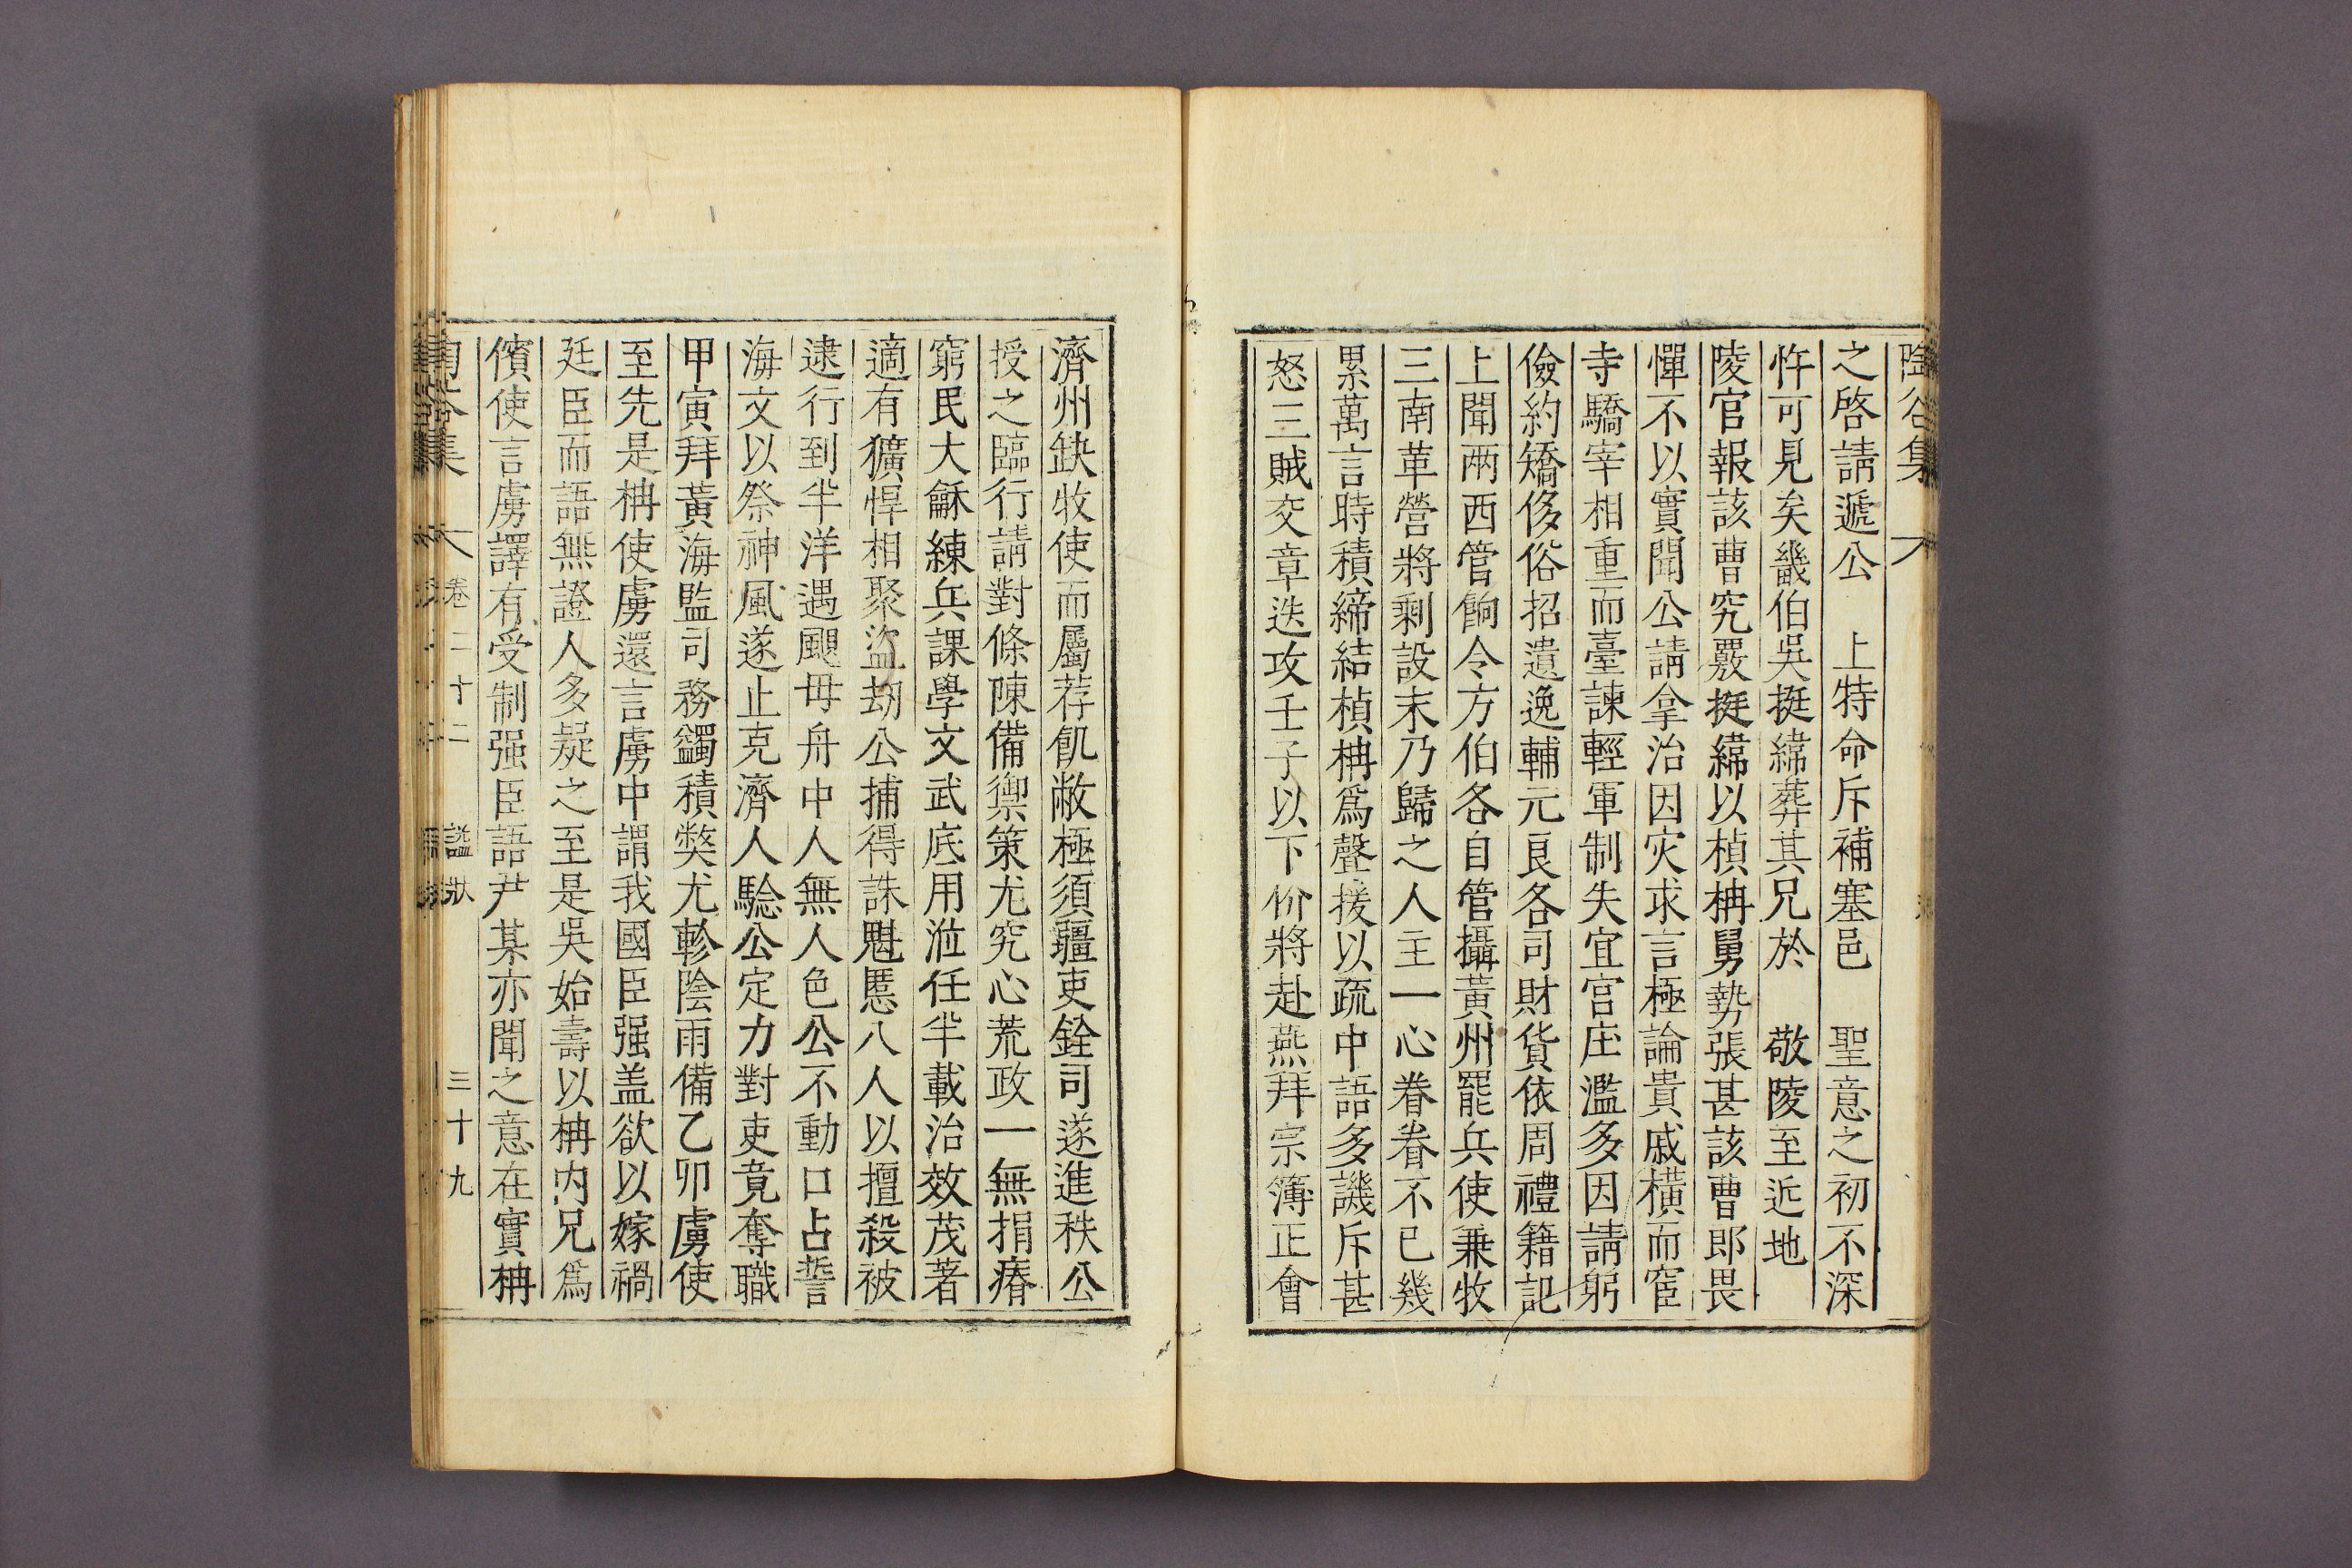 陶谷集
之啓請遞公　上特命斥補塞邑　聖意之初不深
忤可見矣畿伯吳挺緯葬其兄於　敬陵至近地
陵官報該曹究覈挺緯以楨柟舅勢張甚該曹郎畏
憚不以實聞公請拿治因灾求言極論貴戚橫而宦
寺驕宰相重而臺諫輕軍制失宜宮庄濫多因請躬
儉約矯侈俗招遺逸輔元良各司財貨依周禮籍記
上聞兩西管餉令方伯各自管攝黃州罷兵使兼牧
三南革營將剩設末乃歸之人主一心眷眷不已幾
累萬言時積締結楨柟爲聲援以疏中語多譏斥甚
怒三賊交章迭攻壬子以下价將赴燕拜宗簿正會
濟州缺牧使而屬荐飢敝極須疆吏銓司遂進秩公
授之臨行請對條陳備禦策尤究心荒政一無捐瘠
窮民大龢練兵課學文武底用涖任半載治效茂著
適有獷悍相聚盜劫公捕得誅魁慝八人以擅殺被
逮行到半洋遇颶毋舟中人無人色公不動口占誓
海文以祭神風遂止克濟人驗公定力對吏竟奪職
甲寅拜黃海監司務蠲積弊尤軫陰雨備乙卯虜使
至先是柟使虜還言虜中謂我國臣强盖欲以嫁禍
廷臣而語無證人多疑之至是吳始壽以柟內兄爲
儐使言虜譯有受制强臣語尹某亦聞之意在實柟
陶谷集　卷二十二　諡狀　三十九